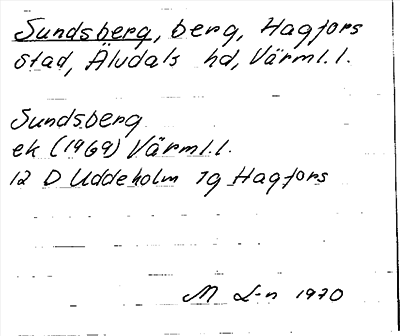 Sundsberg, berg, Hagfors
stad, Äludals hd, Värml.l.
Sundsberg
ek (1969) Värml.l.
12 D Uddeholm 1g Hagfors
M L-n 1970